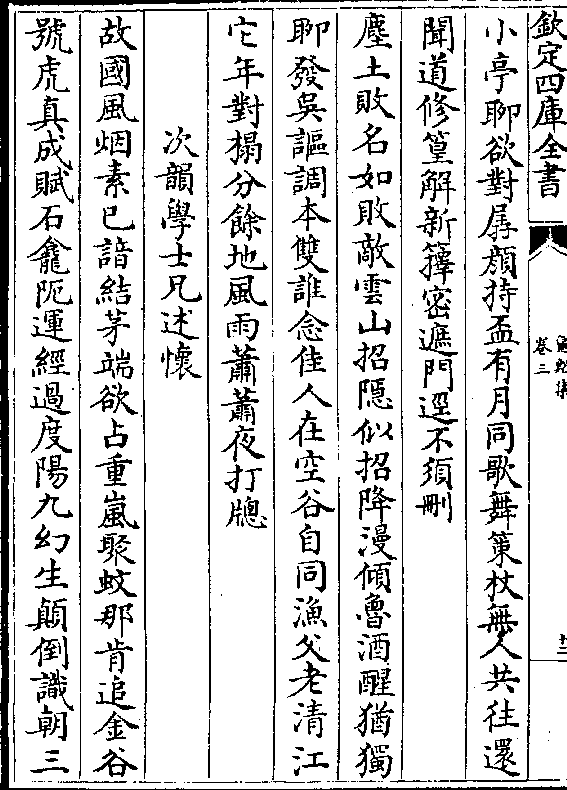 欽定四庫全書
卷三
小亭聊欲對孱顔持盃有月同歌舞策杖無人共往還
聞道修篁解新籜密遮門逕不須刪
塵土敗名如敗敵雲山招隱似招降漫傾魯酒醒猶獨
聊發吳謳調本雙誰念佳人在空谷自同漁父老清江
它年對榻分餘地風雨蕭蕭夜打牕
次韻學士兄述懷
故國風烟素已諳結茅端欲占重嵐聚蚊那肯追金谷
號虎真成賦石龕阨運經過度陽九幻生顛倒識朝三